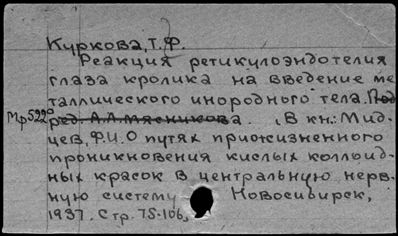 Куркова, Т.Ф.
Реакция ретикулоэндотелия
глаза кролика на введение ме
таллического инородного тела. Под
Мр5220 ред. А.А. Мясникова. В кн: Мид-
цев, Ф.И. О путях прижизненного
проникновения кислых коллоид-
ных красок в центральную нерв-
ную систему Новосибирск,
1937. Стр. 75-106,